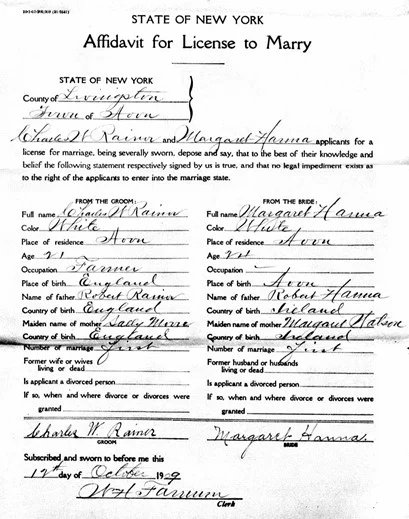 STATE OF NEW YORK
Affidavit for License to Marry
STATE OF NEW YORK
County of Livingston
Town of Avon
Charles W Rainer and Margaret Hanna applicants for a
license for marriage, being severally sworn, depose and say, that to the best of their knowledge and
belief the following statement respectively signed by us is true, and that no legal impediment exists as
to the right of the applicants to enter into the marriage state.
FROM THE GROOM:
Full name Charles W Rainer
Color White
Place of residence Avon
Age 21
Occupation Farmer
Place of birth England
Name of father Robert Rainer
Country of birth England
Maiden name of mother Sally
Country of birth England
Number of marriage First
Former wife or wives
living or dead
Is applicant a divorced person
If so, when and where divorce or divorces were
granted
Charles W. Rainer
GROOM
FROM THE BRIDE:
Full name Margaret Hanna
Color White
Place of residence Avon
Age
Occupation —
Place of birth Avon
Name of father Robert Hanna
Country of birth Ireland
Maiden name of mother Margaret Watson
Country of birth Ireland
Number of marriage First
Former husband or husbands
living or dead
Is applicant a divorced person
If so, when and where divorce or divorces were
granted
Margaret Hanna
BRIDE
Subscribed and sworn to before me this
12th day of October 1909
Clerk